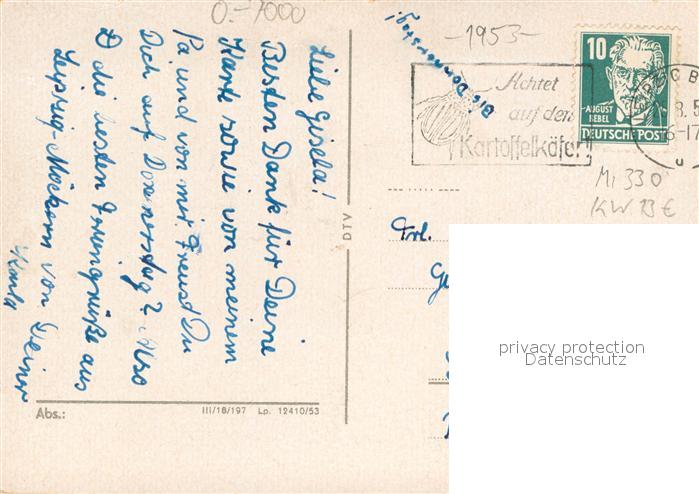 0.-7000
-1953-
Bis Donnerstag!
Achtet
auf den
Kartoffelkäfer!
10
AUGUST
BEBEL
DEUTSCHE POST
Mi 330
KW 23 €
Liebe Gisela!
Besten Dank für Deine
Karte sowie von meinem
Pa und von mir. Freust Du
Dich auf Donnerstag? Also
D die besten Grüße aus
Leipzig-Möckern von Deiner
DTV
Frl.
privacy protection
Datenschutz
Abs.:
III/18/197 Lp. 12410/53